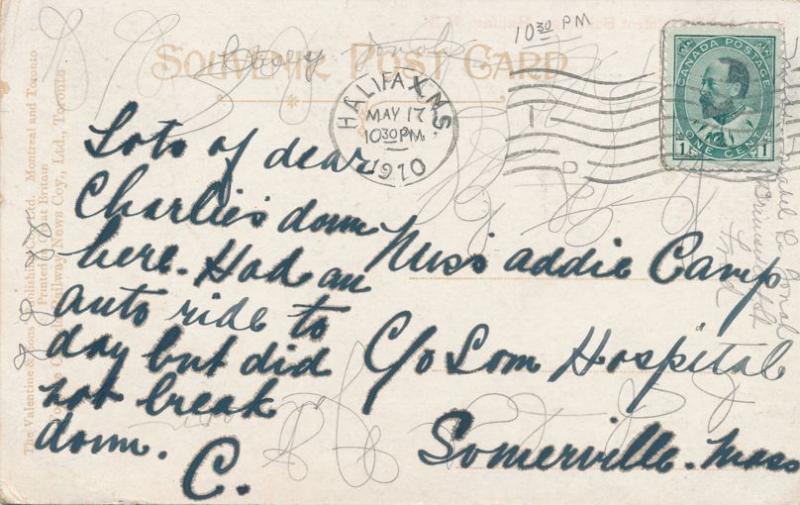 SOUVENIR POST CARD
10 30 PM
HALIFAX N.S.
MAY 17
10 30 PM
1910
CANADA POSTAGE
ONE CENT
1 1
Lots of dear
Charlie's down
here. Had an
auto ride to
day but did
not break
down.
C.
Miss Addie Camp
C/o Som Hospital
Somerville. Mass
The Valentine & Sons Publishing Co., Ltd., Montreal and Toronto
Printed in Great Britain
Railway News Coy., Ltd., Toronto